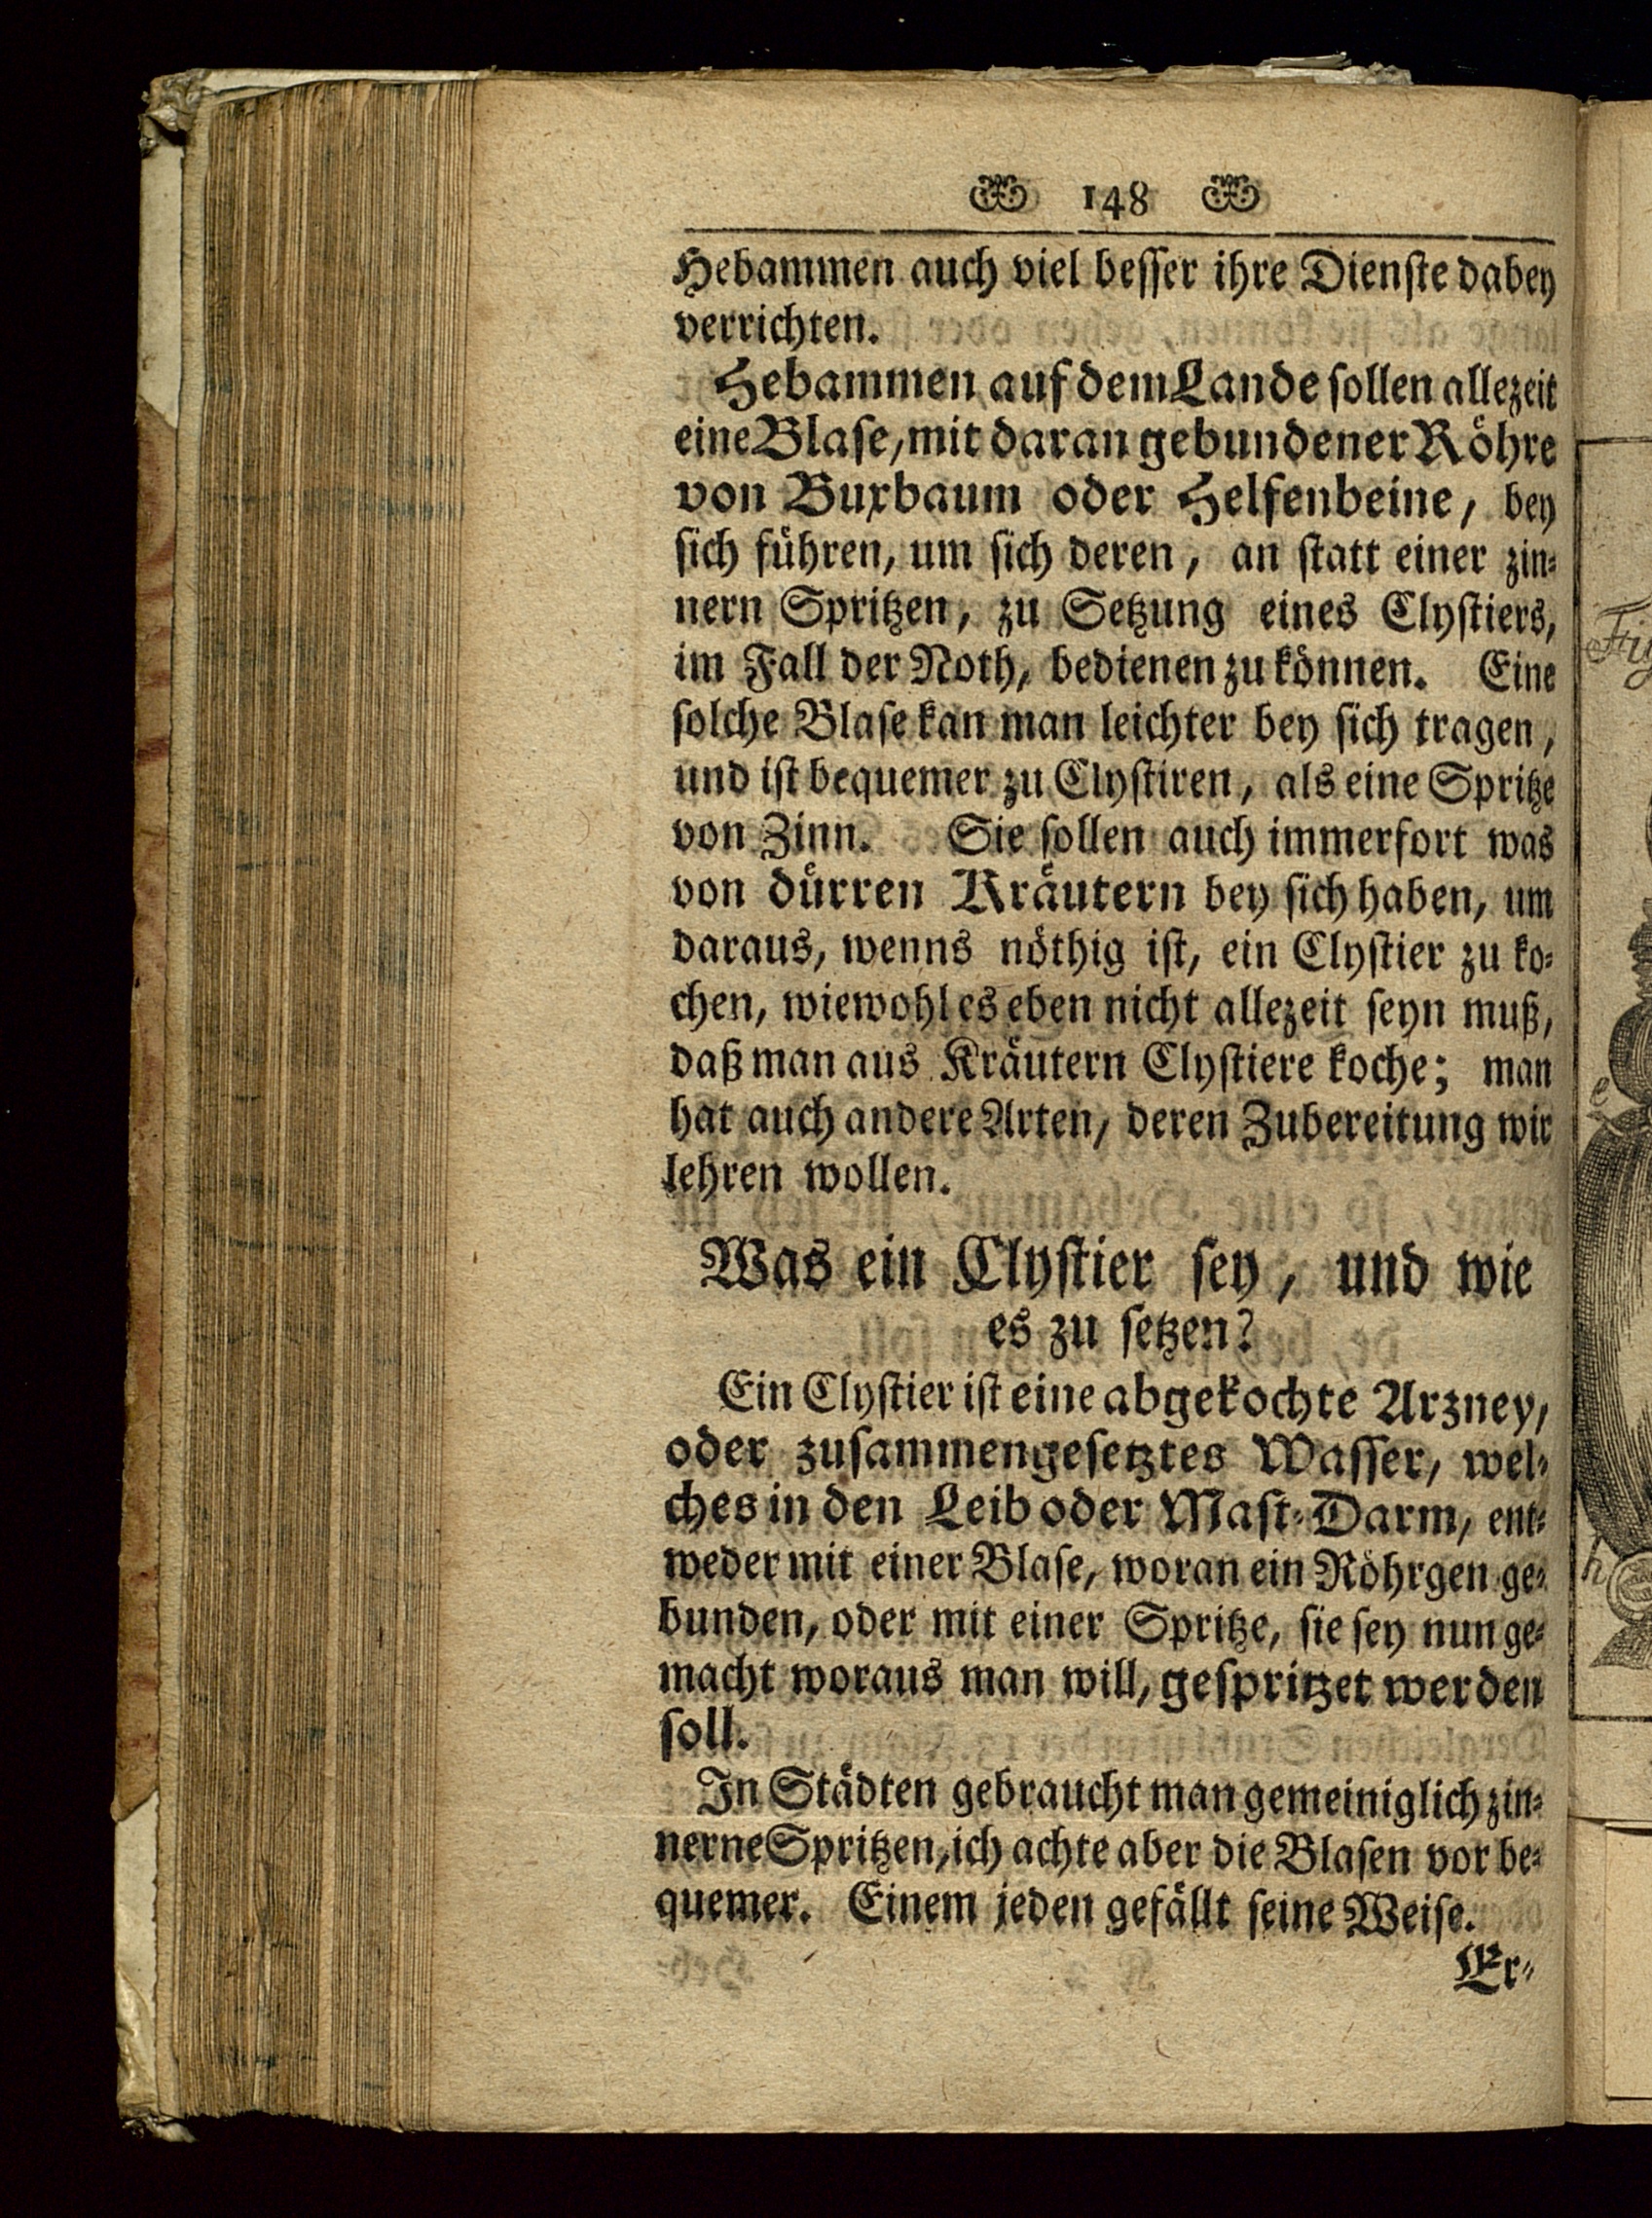 148
Hebammen auch viel besser ihre Dienste dabey
verrichten.
Hebammen auf dem Lande sollen allezeit
eine Blase, mit daran gebundener Röhre
von Buxbaum oder Helfenbeine, bey
sich führen, um sich deren, an statt einer zin-
nern Spritzen, zu Setzung eines Clystiers,
im Fall der Noth, bedienen zu können. Eine
solche Blase kan man leichter bey sich tragen,
und ist bequemer zu Clystiren, als eine Spritze
von Zinn. Sie sollen auch immerfort was
von dürren Kräutern bey sich haben, um
daraus, wenns nöthig ist, ein Clystier zu ko-
chen, wiewohl es eben nicht allezeit seyn muß,
daß man aus Kräutern Clystiere koche; man
hat auch andere Arten, deren Zubereitung wir
lehren wollen.
Was ein Clystier sey, und wie
es zu setzen?
Ein Clystier ist eine abgekochte Arzney,
oder zusammengesetztes Wasser, wel-
ches in den Leib oder Mast-Darm, ent-
weder mit einer Blase, woran ein Röhrgen ge-
bunden, oder mit einer Spritze, sie sey nun ge-
macht woraus man will, gespritzet werden
soll.
In Städten gebraucht man gemeiniglich zin-
nerne Spritzen, ich achte aber die Blasen vor be-
quemer. Einem jeden gefällt seine Weise.
Er-
Fig
e
h